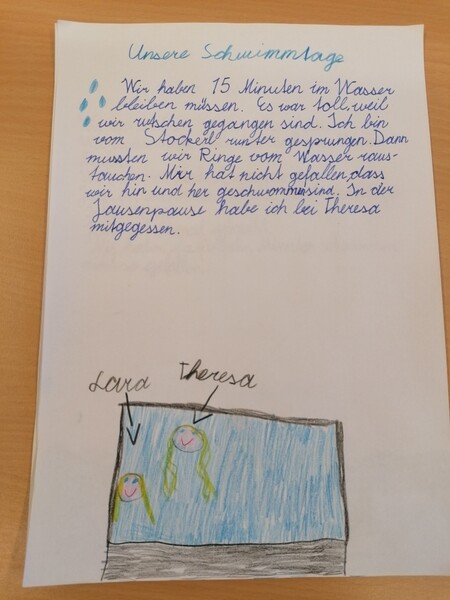 Unsere Schwimmtage
Wir haben 15 Minuten im Wasser
bleiben müssen. Es war toll, weil
wir rutschen gegangen sind. Ich bin
vom Stockerl runter gesprungen. Dann
mussten wir Ringe vom Wasser raus-
tauchen. Mir hat nicht gefallen, dass
wir hin und her geschwommen sind. In der
Jausenpause habe ich bei Theresa
mitgegessen.
Lara Theresa